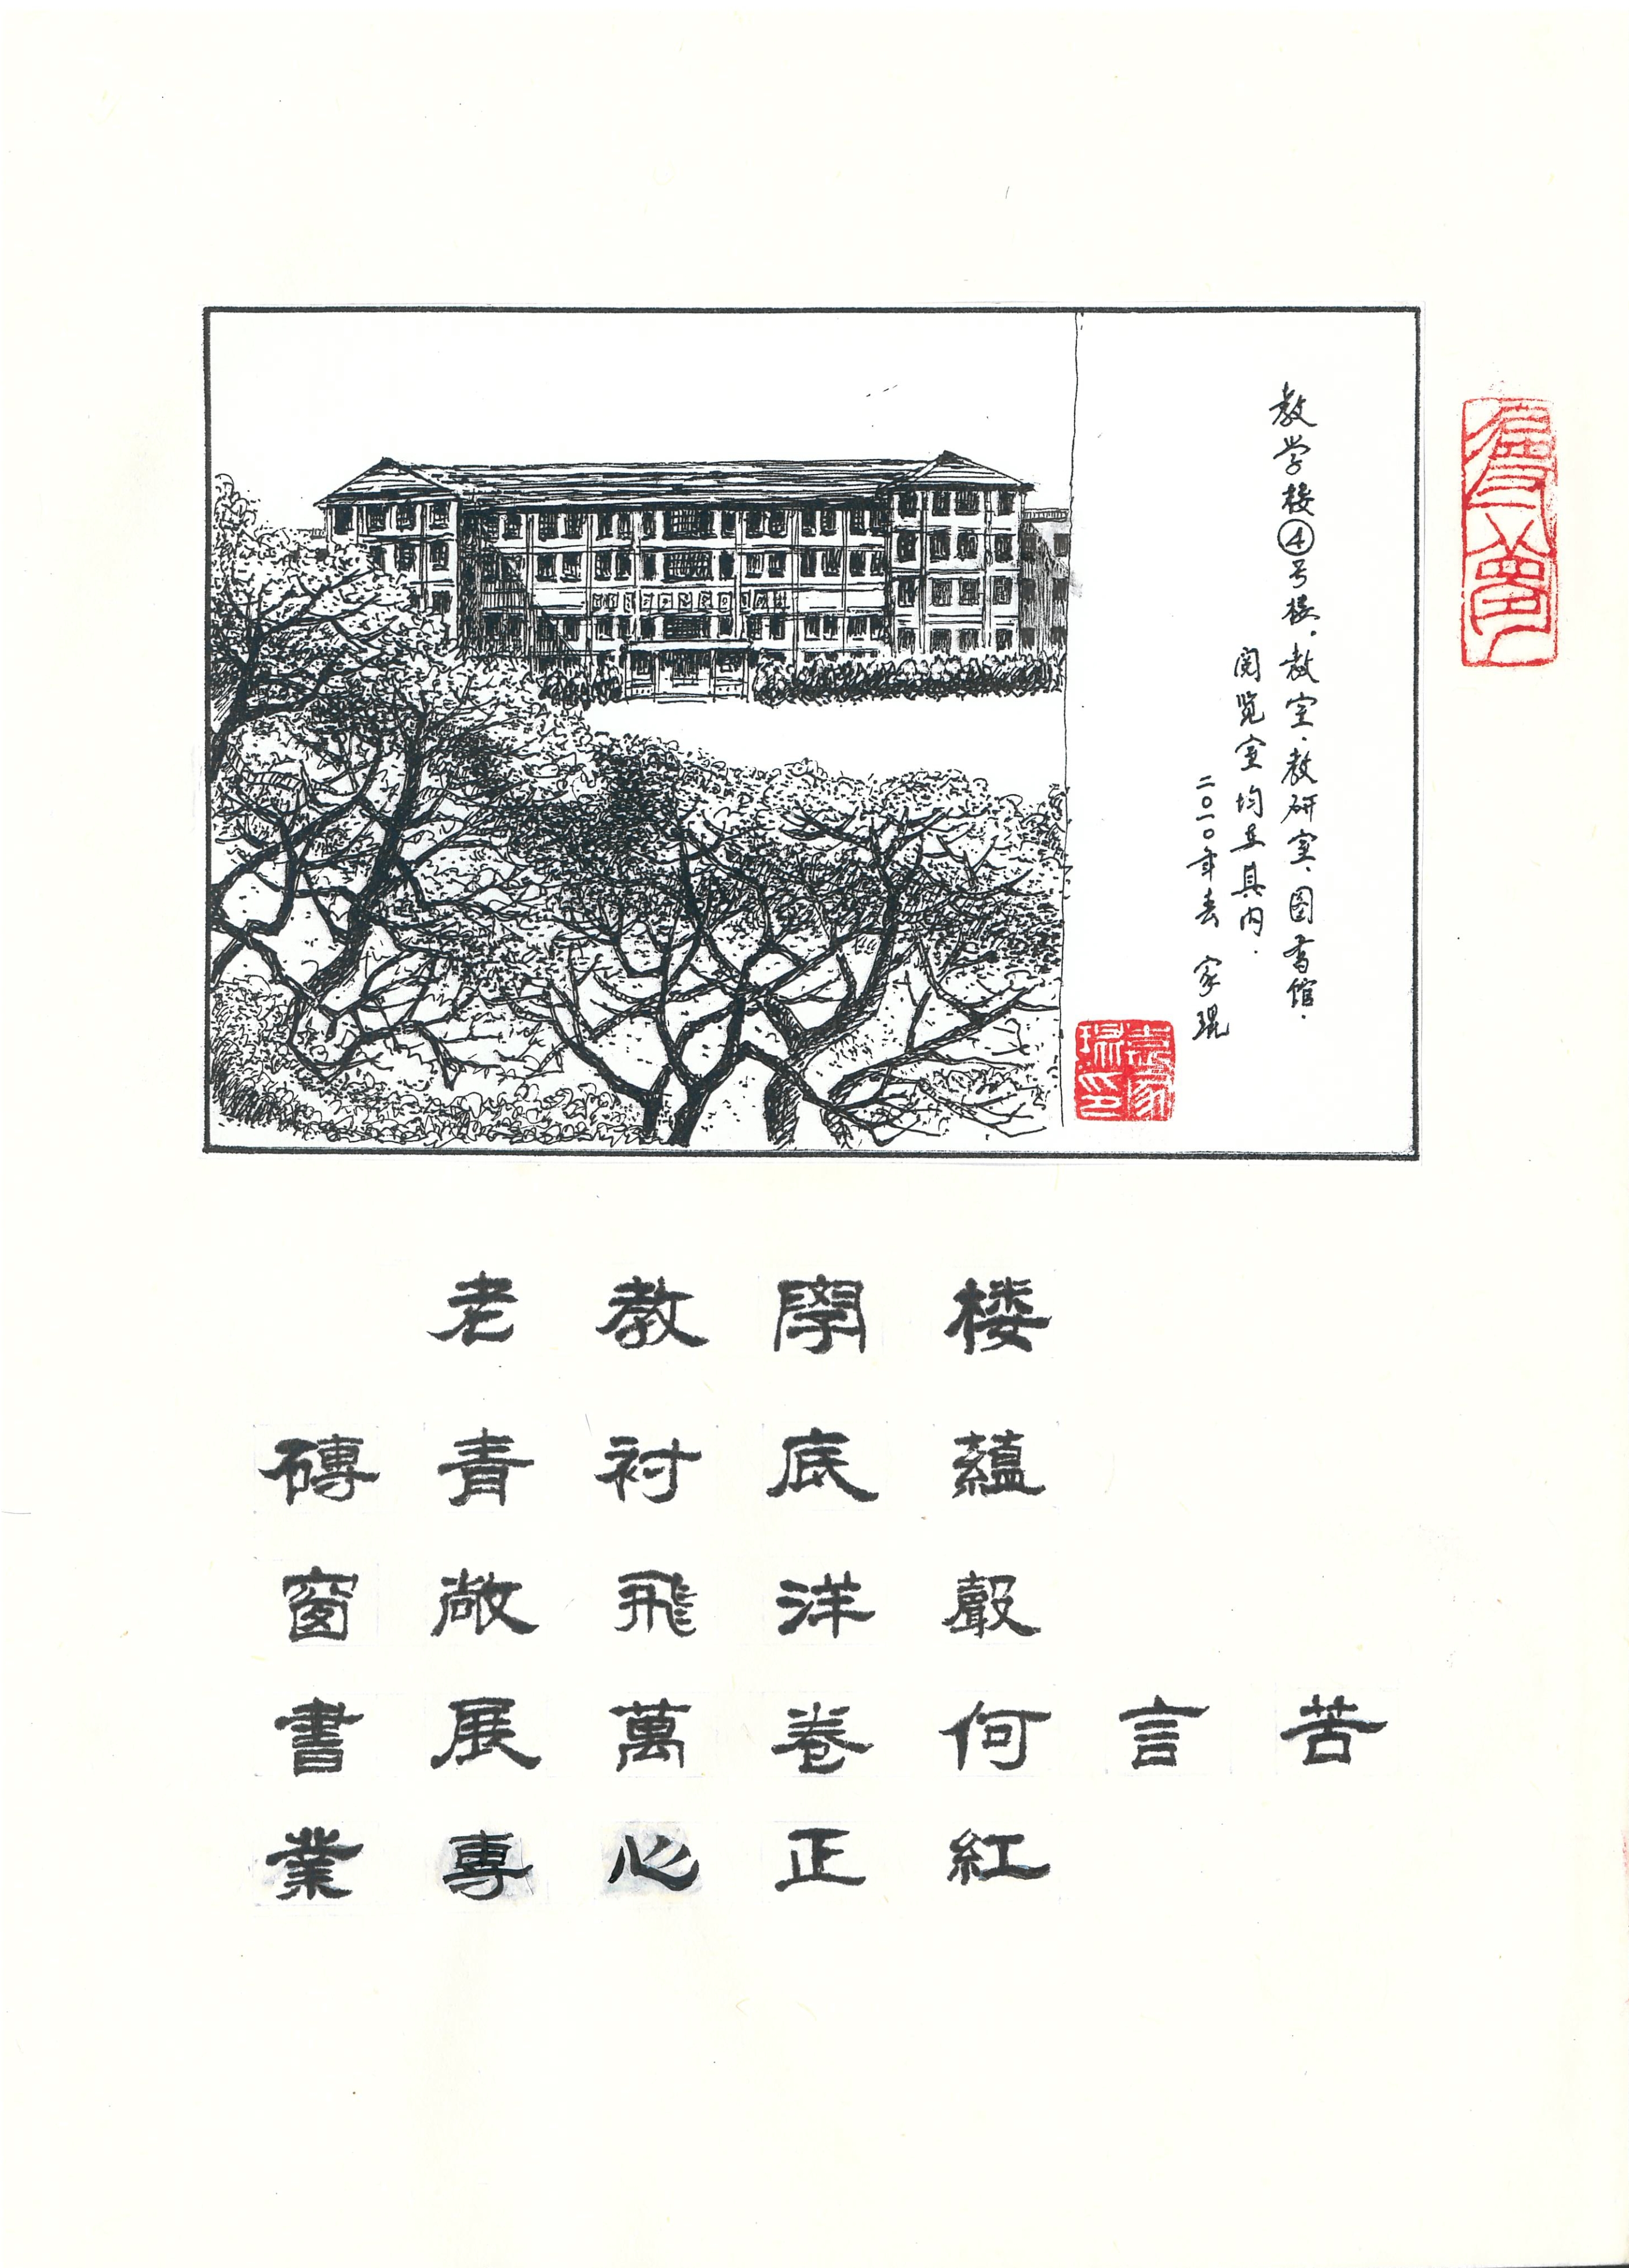 教学楼④号楼.教室.教研室.图书馆.
阅览室均在其内.
二〇一〇年春 家琨
老教學楼
磚青衬底蘊
窗敞飛洋聲
書展萬卷何言苦
業專心正紅